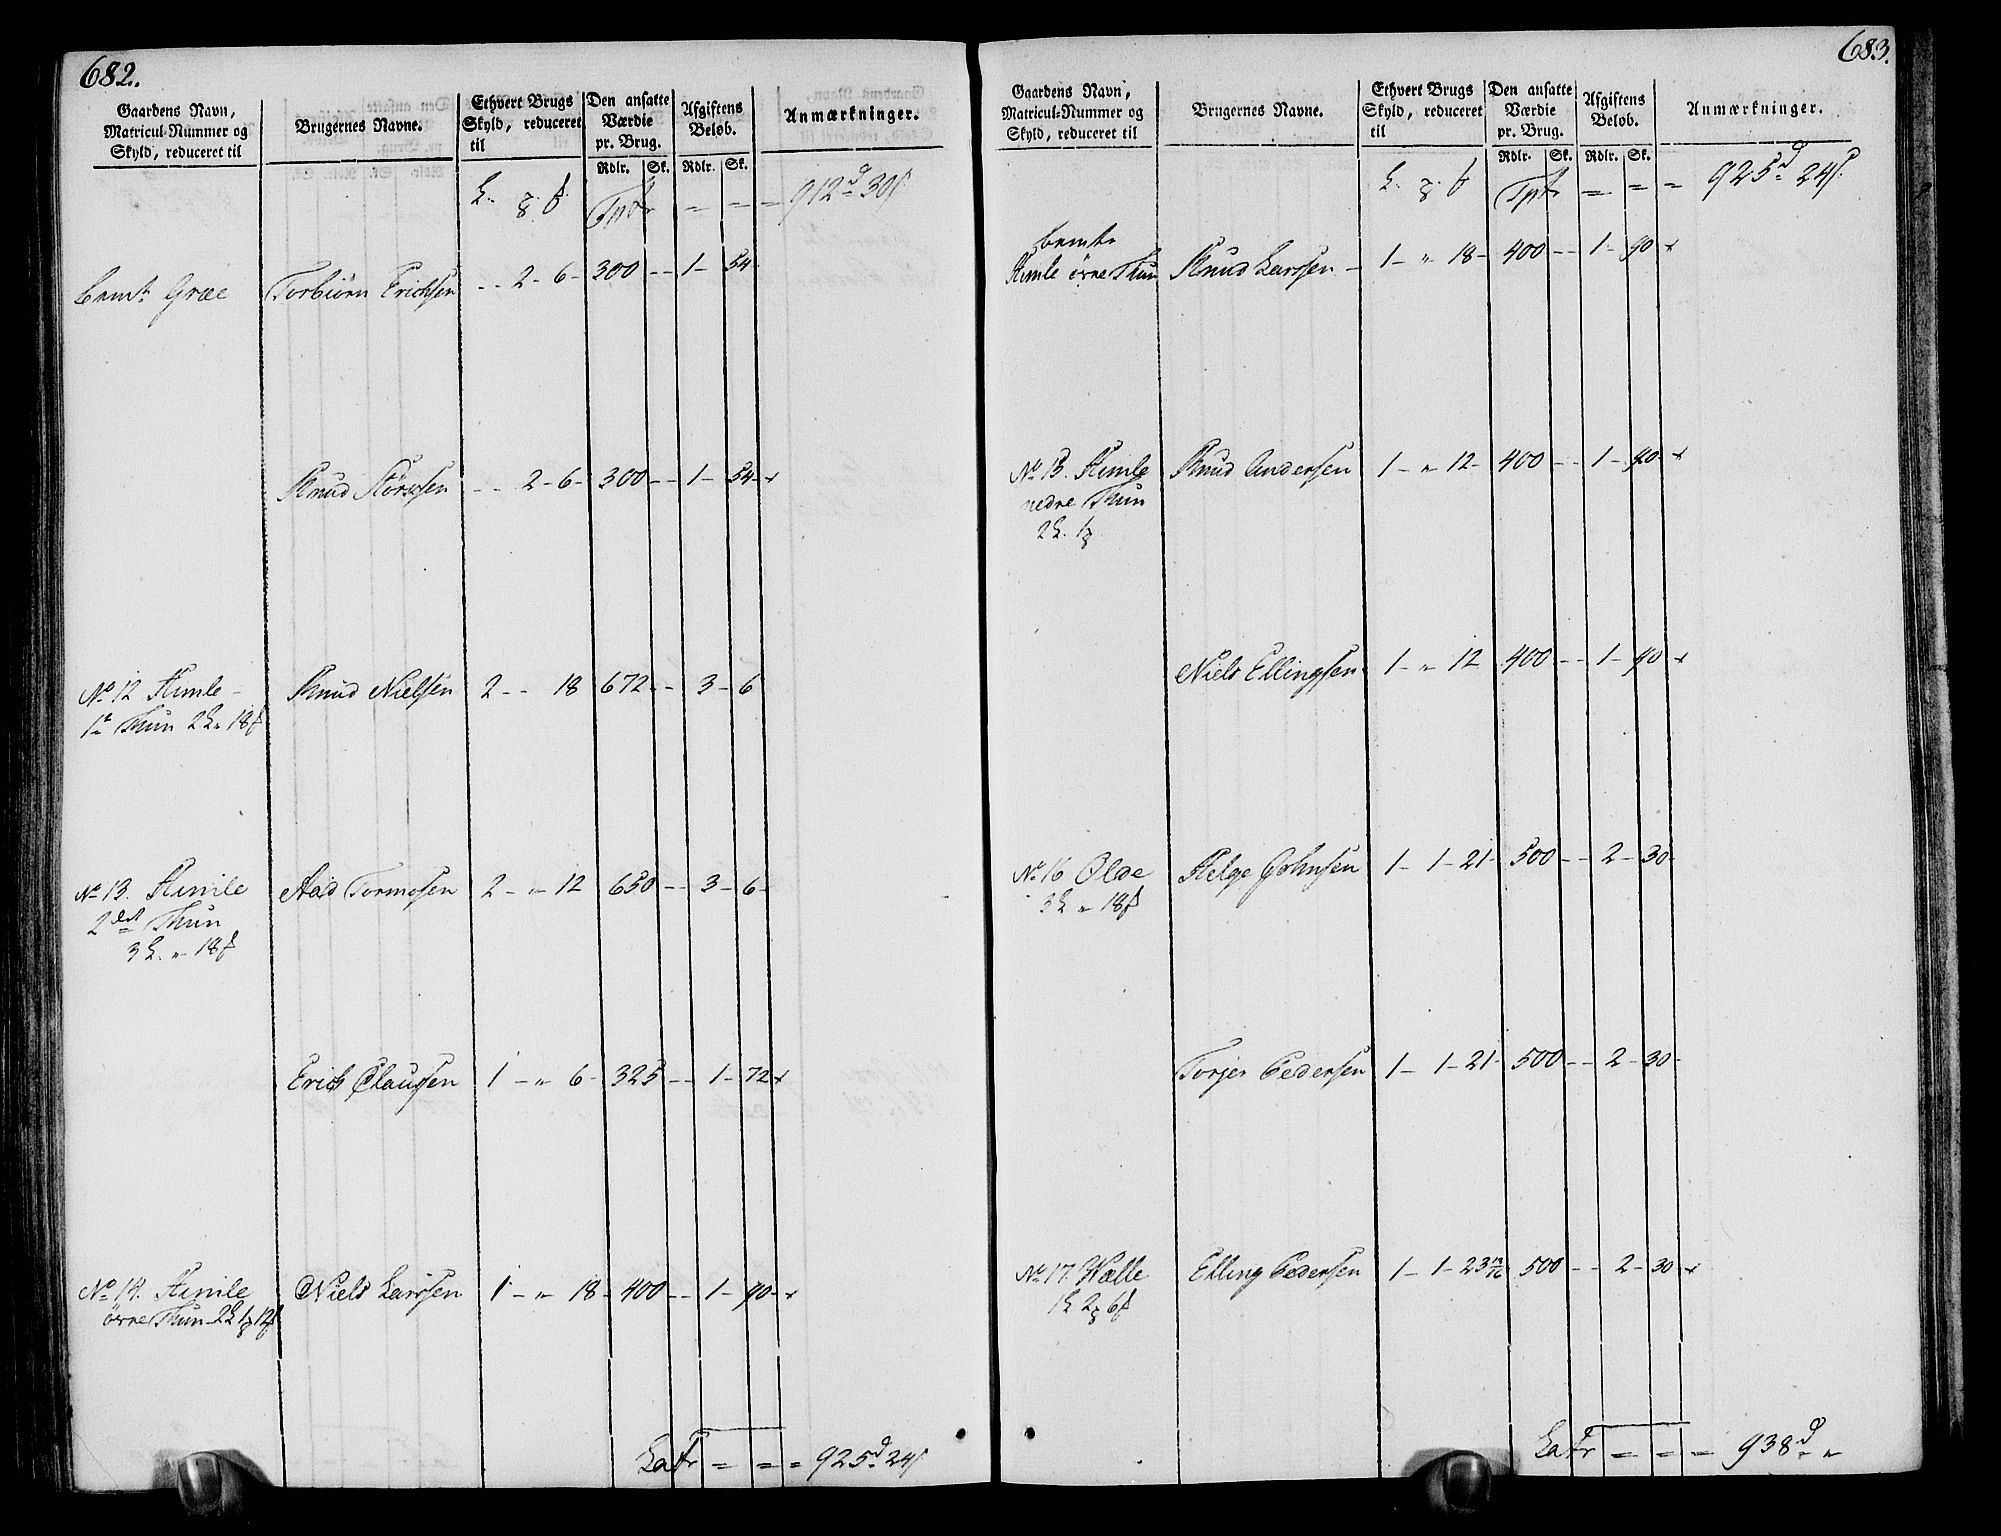 682.
Gaardens Navn, Matricul-Nummer og Skyld, reduceret til
Brugernes Navne.
Ethvert Brugs Skyld, reduceret til
Den ansatte Værdie pr. Brug.
Afgiftens Beløb.
Anmærkninger.
Rdlr. Sk. Rdlr. Sk.
Tpt = = = 912 d 30 s.
bemte Græe Torbiørn Erichsen - - 2 - 6 - 300 - - 1 - 54
Knud - - 2 - 6 - 300 - - 1 - 54 - x
No 12 Himle - Knud Nielsen 2 - - 18 672 - - 3 - 6
1te Thun 2 L " 18
No 13. Himle Aad Tormosen 2 - " 12 650 - - 3 - 6 -
2det Thun
3 L. " 18
Erich Claussen 1 - " 6 - 325 - - 1 - 72 x
No 14. Himle Niels Larssen 1 - " 18 - 400 - - 1 - 90 - x
øvre Thun 2 L 1 12
Latr = = = 925 d 24 s
683.
Gaardens Navn, Matricul-Nummer og Skyld, reduceret til
Brugernes Navne.
Ethvert Brugs Skyld, reduceret til
Den ansatte Værdie pr. Brug.
Afgiftens Beløb.
Anmærkninger.
Rdlr. Sk. Rdlr. Sk.
Tpt = = = 925 d 24 s.
bemte
Himle øvre Thun Knud Larssen - 1 - " 18 - 400 - - 1 - 90 - x
No 15. Himle Knud Andersen 1 - " 12 - 400 - - 1 - 90 - x
nedre Thun
2 L. 1
Niels Ellingsen 1 - " 12 400 - - 1 - 90 - x
No 16 Olde Helge Johnsen 1 - 1 - 21 - 500 - - 2 - 30 -
3 L " 18
Torjer Pedersen 1 - 1 - 21 - 500 - - 2 - 30 -
No 17. Wælle Elling Pedersen 1 - 1 - 23 500 - - 2 - 30 - x
1 L 2 6
Latr = = = 938 d " "